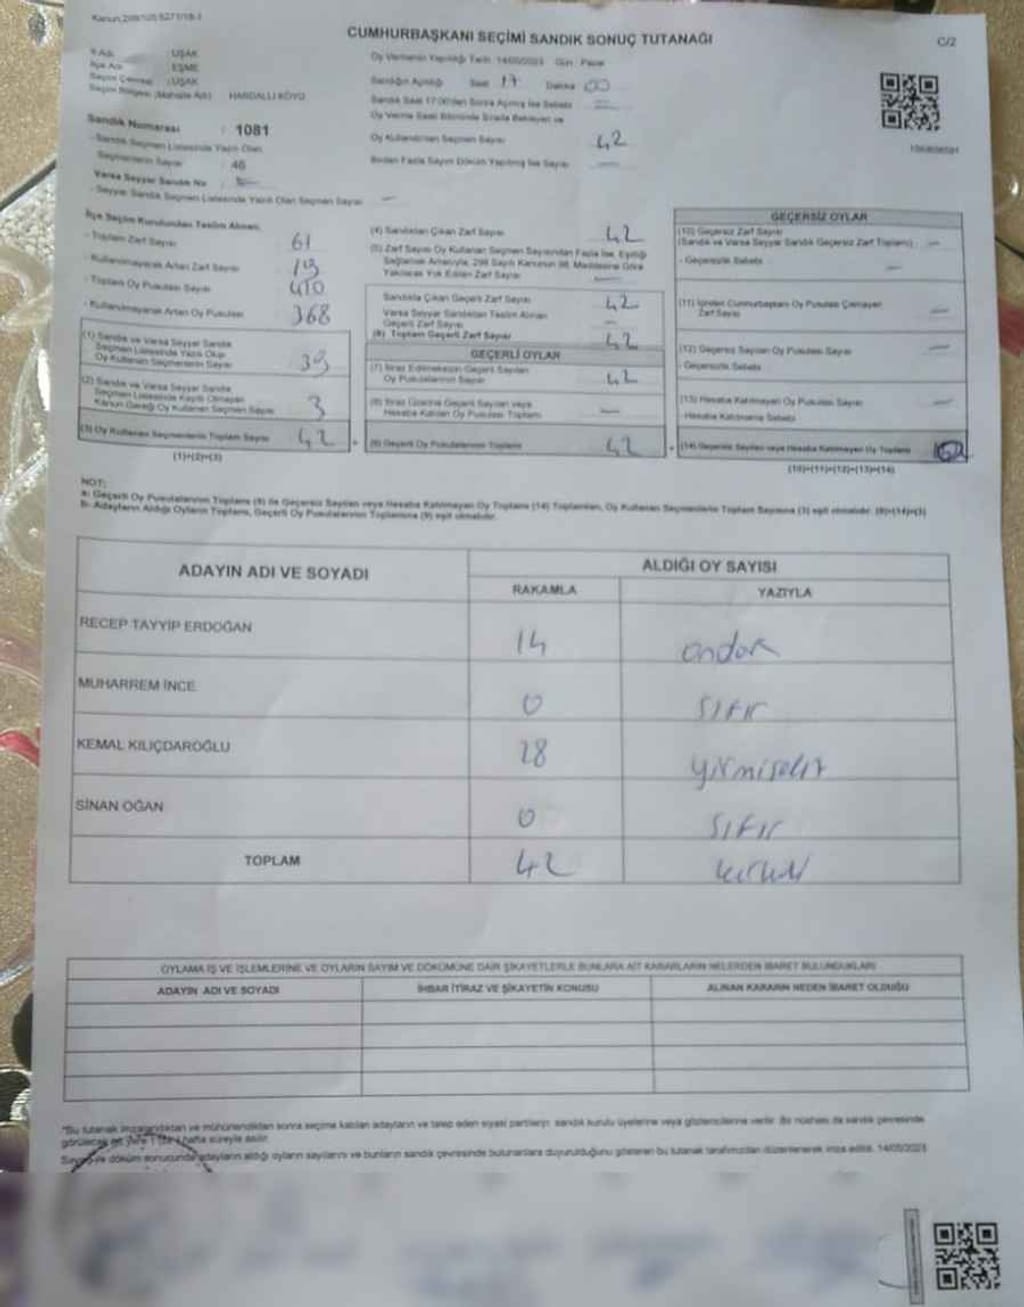 CUMHURBAŞKANI SEÇİMİ SANDIK SONUÇ TUTANAĞI
C/2
İl Adı : UŞAK
İlçe Adı : EŞME
Seçim Çevresi : UŞAK
Seçim Bölgesi (Mahalle Adı) : HARDALLI KÖYÜ
Oy Vermenin Yapıldığı Tarih: 14/05/2023 Gün: Pazar
Sandığın Açıldığı Saat 17 Dakika 00
Sandık Saat 17:00'den Sonra Açılmış İse Sebebi
Oy Verme Saati Bitiminde Sırada Bekleyen ve
Oy Kullandırılan Seçmen Sayısı 42
Birden Fazla Sayım Döküm Yapılmış İse Sayısı
Sandık Numarası : 1081
- Sandık Seçmen Listesinde Yazılı Olan
Seçmenlerin Sayısı 46
Varsa Seyyar Sandık No
- Seyyar Sandık Seçmen Listesinde Yazılı Olan Seçmen Sayısı
İlçe Seçim Kurulundan Teslim Alınan;
- Toplam Zarf Sayısı 61
- Kullanılmayarak Artan Zarf Sayısı 19
- Toplam Oy Pusulası Sayısı 410
- Kullanılmayarak Artan Oy Pusulası 368
(1) Sandık ve Varsa Seyyar Sandık
Seçmen Listesinde Yazılı Olup
Oy Kullanan Seçmenlerin Sayısı 39
(2) Sandık ve Varsa Seyyar Sandık
Seçmen Listesinde Kayıtlı Olmayan
Kanun Gereği Oy Kullanan Seçmen Sayısı 3
(3) Oy Kullanan Seçmenlerin Toplam Sayısı 42
(1)+(2)=(3)
(4) Sandıktan Çıkan Zarf Sayısı 42
(5) Zarf Sayısı Oy Kullanan Seçmen Sayısından Fazla İse, Eşitliği
Sağlamak Amacıyla, 298 Sayılı Kanunun 98. Maddesine Göre
Yakılarak Yok Edilen Zarf Sayısı
Sandıkta Çıkan Geçerli Zarf Sayısı 42
Varsa Seyyar Sandıktan Teslim Alınan
Geçerli Zarf Sayısı
(6) Toplam Geçerli Zarf Sayısı 42
GEÇERLİ OYLAR
(7) İtiraz Edilmeksizin Geçerli Sayılan
Oy Pusulalarının Sayısı 42
(8) İtiraz Üzerine Geçerli Sayılan veya
Hesaba Katılan Oy Pusulası Toplamı
(9) Geçerli Oy Pusulalarının Toplamı 42
GEÇERSİZ OYLAR
(10) Geçersiz Zarf Sayısı
(Sandık ve Varsa Seyyar Sandık Geçersiz Zarf Toplamı)
- Geçersizlik Sebebi
(11) İçinden Cumhurbaşkanı Oy Pusulası Çıkmayan
Zarf Sayısı
(12) Geçersiz Sayılan Oy Pusulası Sayısı
- Geçersizlik Sebebi
(13) Hesaba Katılmayan Oy Pusulası Sayısı
- Hesaba Katılmama Sebebi
(14) Geçersiz Sayılan veya Hesaba Katılmayan Oy Toplamı
(10)+(11)+(12)+(13)=(14)
NOT:
a- Geçerli Oy Pusulalarının Toplamı (9) ile Geçersiz Sayılan veya Hesaba Katılmayan Oy Toplamı (14) Toplamları, Oy Kullanan Seçmenlerin Toplam Sayısına (3) eşit olmalıdır. (9)+(14)=(3)
b- Adayların Aldığı Oyların Toplamı, Geçerli Oy Pusulalarının Toplamına (9) eşit olmalıdır.
ADAYIN ADI VE SOYADI
ALDIĞI OY SAYISI
RAKAMLA YAZIYLA
RECEP TAYYİP ERDOĞAN 14 ondört
MUHARREM İNCE 0 sıfır
KEMAL KILIÇDAROĞLU 28 yirmisekiz
SİNAN OĞAN 0 sıfır
TOPLAM 42 kırkiki
OYLAMA İŞ VE İŞLEMLERİNE VE OYLARIN SAYIM VE DÖKÜMÜNE DAİR ŞİKAYETLERLE BUNLARA AİT KARARLARIN NELERDEN İBARET BULUNDUKLARI
ADAYIN ADI VE SOYADI İHBAR İTİRAZ VE ŞİKAYETİN KONUSU ALINAN KARARIN NEDEN İBARET OLDUĞU
*Bu tutanak imzalandıktan ve mühürlendikten sonra seçime katılan adayların ve talep eden siyasi partilerin sandık kurulu üyelerine veya gözlemcilerine verilir. Bir nüshası da sandık çevresinde
görülecek bir yere 1 (bir) hafta süreyle asılır.
Sayım ve döküm sonucunda adayların aldığı oyların sayılarını ve bunların sandık çevresinde bulunanlara duyurulduğunu gösteren bu tutanak tarafımızdan düzenlenerek imza edildi. 14/05/2023